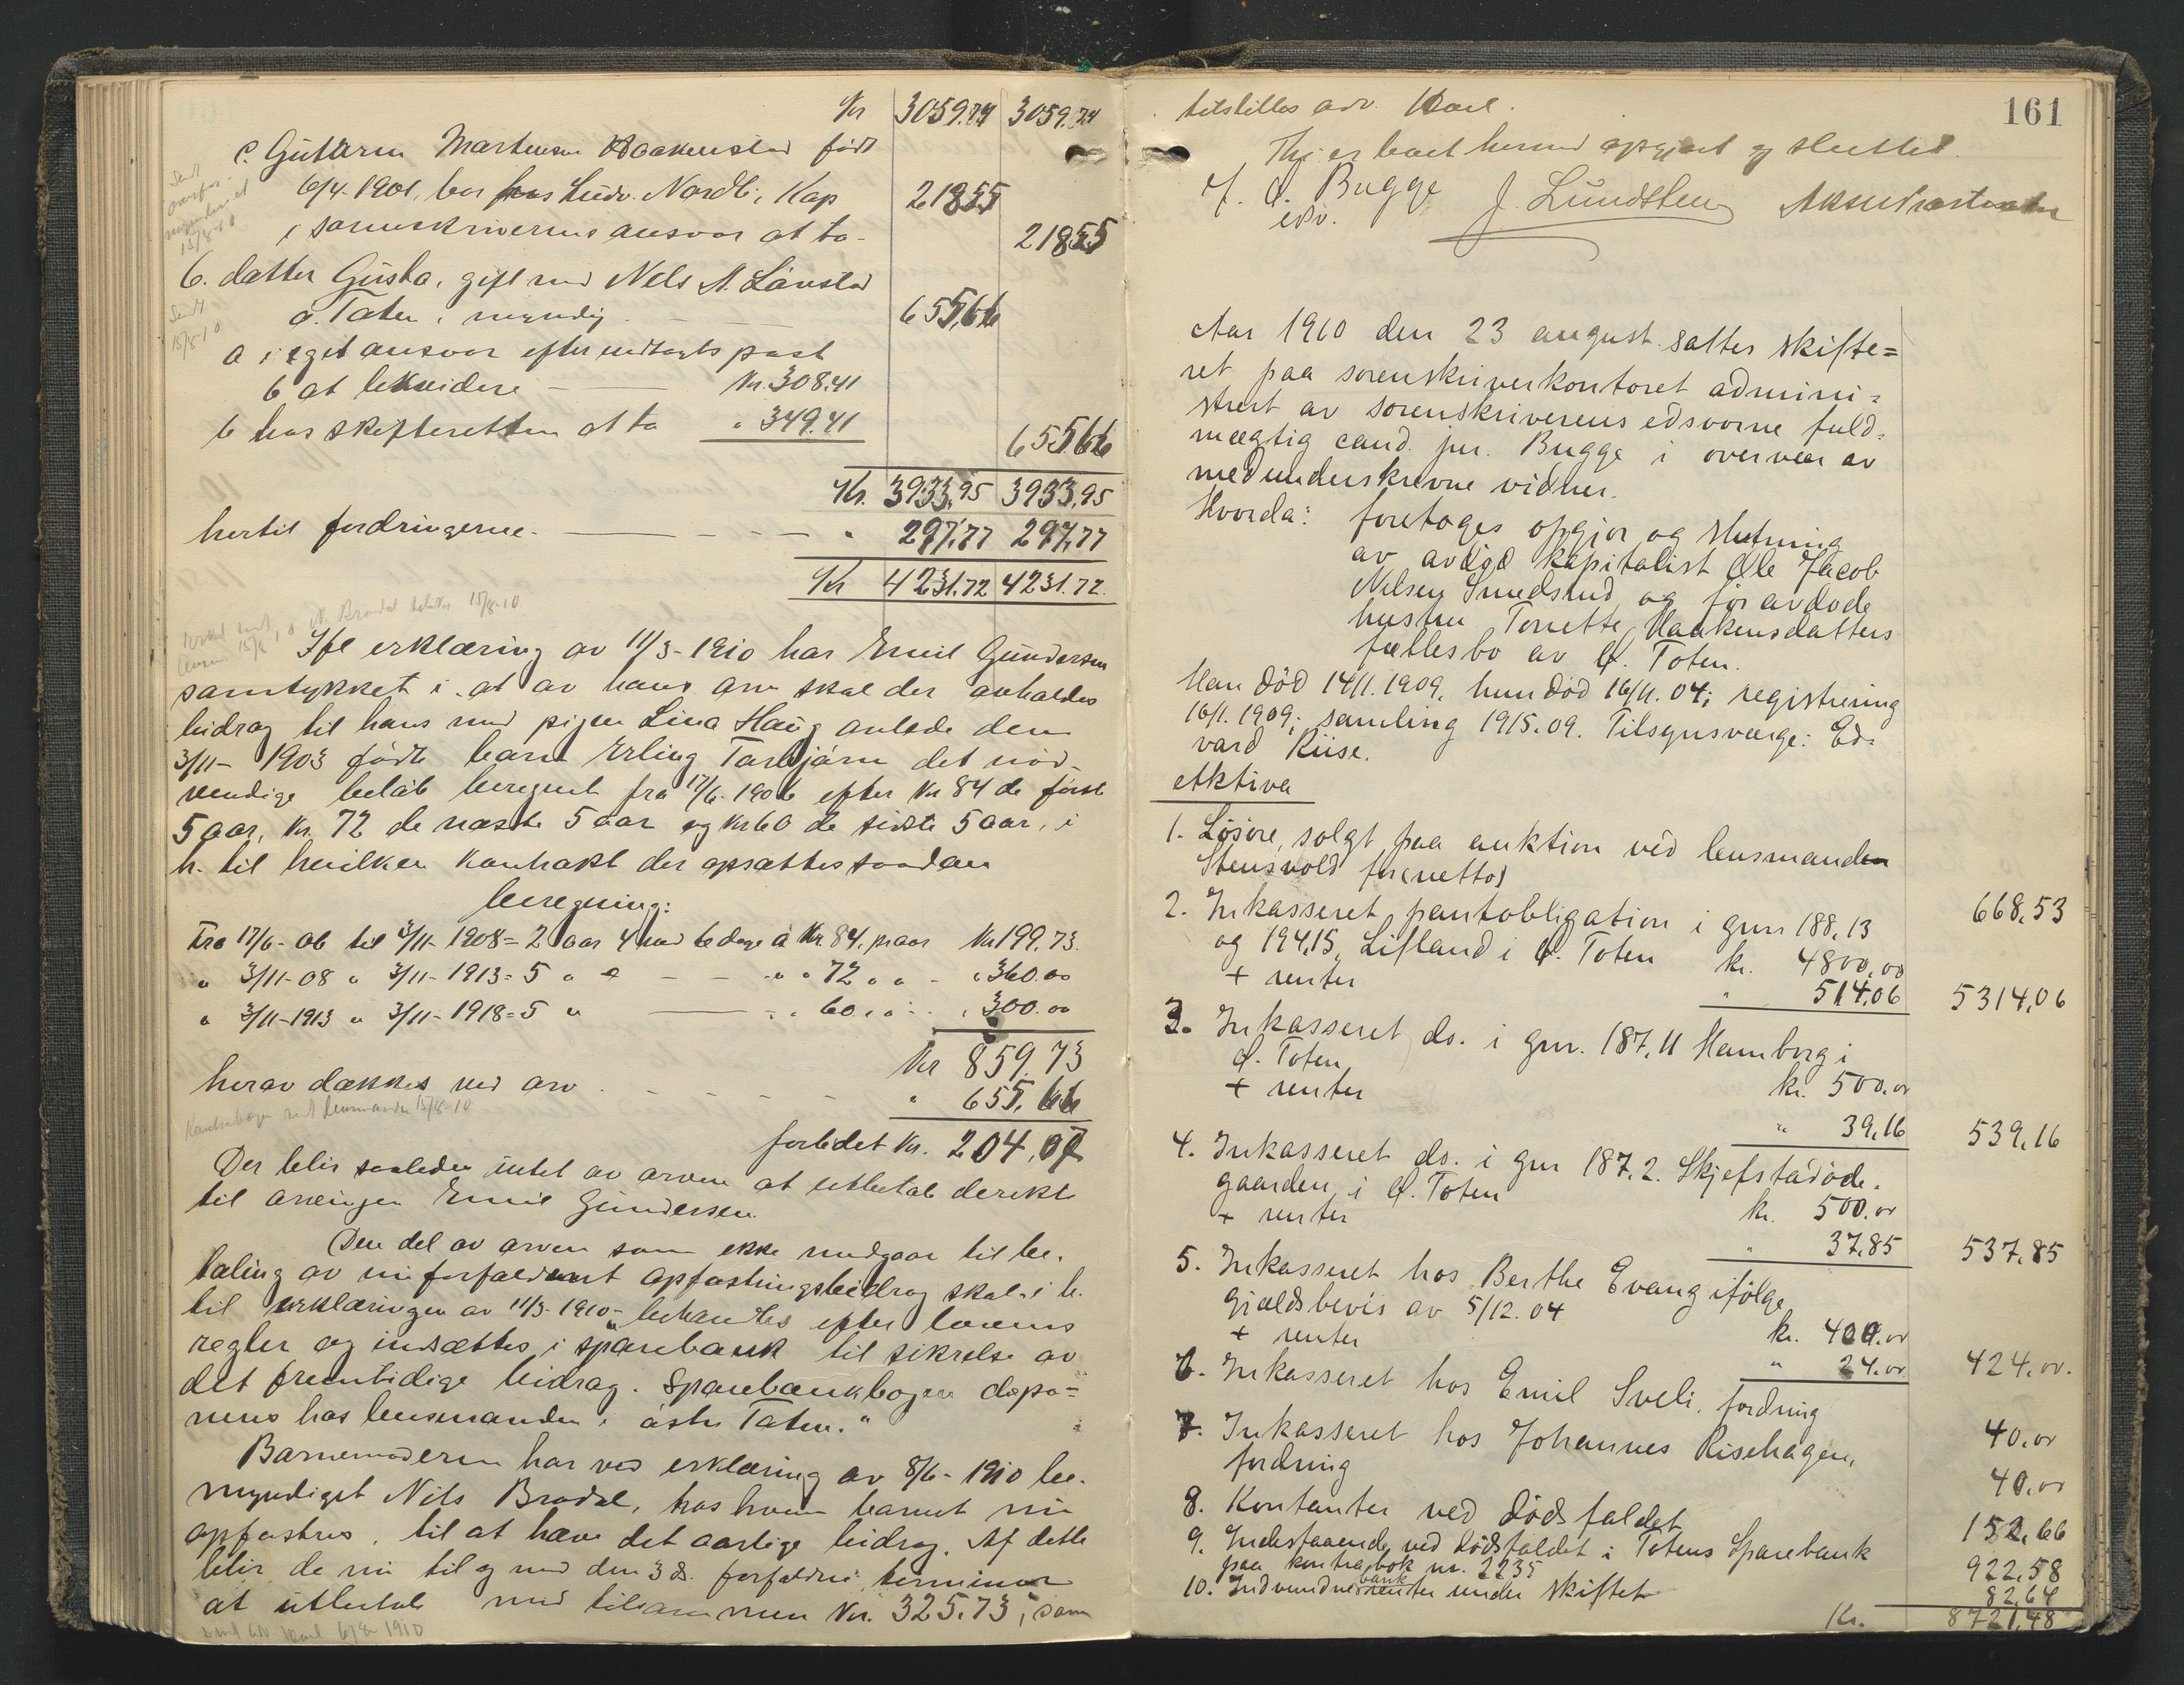 Kr 3059.74 3059.74
c. Guttorm Martensen Haakenstad født
6/4-1901, bor hos Ludv. Nordli, Kap 218.55
i sorenskriverens ansvar at ta - 218.55
6. datter Gusta, gift med Nels A. Lånstad
ø. Toten, myndig. 655,66
a i eget ansvar efter undtagts post
b at lekvidere — Kr. 308.41
b hos skifteretten at ta " 349.41
655.66
Kr. 3933.95 3933.95
hertil fordringerne. — " 297.77 297.77
Kr 4231.72 4231.72.
Ifl erklæring av 11/3-1910 har Emil Gundersen
samtykket i at av hans arv skal der avholdes
bidrag til hans med pigen Lina Haug avlede den
3/11-1903 fødte barn Erling Torbjørn det nød-
vendige beløb beregnet fra 17/6-1906 efter Kr 84 de første
5 aar, Kr. 72 de næste 5 aar og Kr 60 de sidste 5 aar, i
h. til hvilken kontrakt der opsættes saadan
beregning:
Fra 17/6-06 til 3/11-1908 = 2 aar 4 md 16 dage a Kr. 84. pr aar Kr 199.73.
" 3/11-08 " 3/11-1913 = 5 " " — " " 72 " " - " 360.00
" 3/11-1913 " 3/11-1918 = 5 " — " " 60 " " " 300.00
Kr 859.73
herav dækkes ved arv - - - " 655.66
forledet Kr. 204.07
Kontrabogen sendt lensmanden 15/8-10
Der blir saaledes intet av arven at utbetale derekte
til arvingen Emil Gundersen.
Den del av arven som ikke medgaar til be-
taling av nu forfaldent opfostringsbidrag skal i h.
til erklæringen av 11/3-1910 "behandles efter lovens
regler og indsættes i sparebank til sikrelse av
det fremtidige bidrag. Sparebankbogen depo-
neres hos lensmanden i østre Toten."
Barnemoderen har ved erklæring av 8/6-1910 be-
myndiget Nils Brodal, hos hvem barnet nu
opfostres, til at hæve det aarlige bidrag. Af dette
blir de nu til og med den 3 ds. forfaldne terminer
at utbetale med tilsammen Kr. 325.73, som
161
tilstilles adv. Hoel.
Thi er boet hermed opgjort og sluttet.
O. Bugge J. Lundsten
edsv.
Aar 1910 den 23 august sattes skifte=
ret paa sorenskriverkontoret admini=
strert av sorenskriverens edsvorne fuld=
mægtig cand. jur. Bugge i overvær av
medunderskrevne vidner.
Hvorda: foretoges opgjør og slutning
av avdød kapitalist Ole Jacob
Nilsen Smedsrud og før avdøde
hustru Tonette Haakensdatters
fællesbo av Ø. Toten.
Han død 14/1. 1909, hun død 16/11. 04; registrering
16/1. 1909; samling 19/5. 09. Tilsynsværge: Ed=
vard Riise.
Aktiva
1. Løsøre, solgt paa auktion ved lensmanden
Stensvold for (netto) 668,53
2. Inkasseret pantobligation i gnr 188,13
og 194,15, Lifland i Ø. Toten kr. 4800,00
+ renter " 514,06 5314,06
3. Inkasseret do. i gnr. 187,11 Hamborg i
Ø. Toten kr. 500.00
+ renter " 39,16 539,16
4. Inkasseret do. i gnr 187,2. Skjefstadøde-
gaarden i Ø. Toten kr. 500.00
+ renter " 37,85 537,85
5. Inkasseret hos Berthe Evang ifølge
gjældsbevis av 5/12.04 kr. 400.00
+ renter " 24.00 424,00.
6. Inkasseret hos Emil Sveli, fordring 40.00
7. Inkasseret hos Johannes Risehagen,
fordring 40.00
8. Kontanter ved dødsfaldet 152,66
9. Indestaaende ved dødsfaldet i Totens Sparebank
paa kontrabok nr. 2235 922,58
10. Indvundne bankrenter under skiftet 82,64
Kr. 8721,48